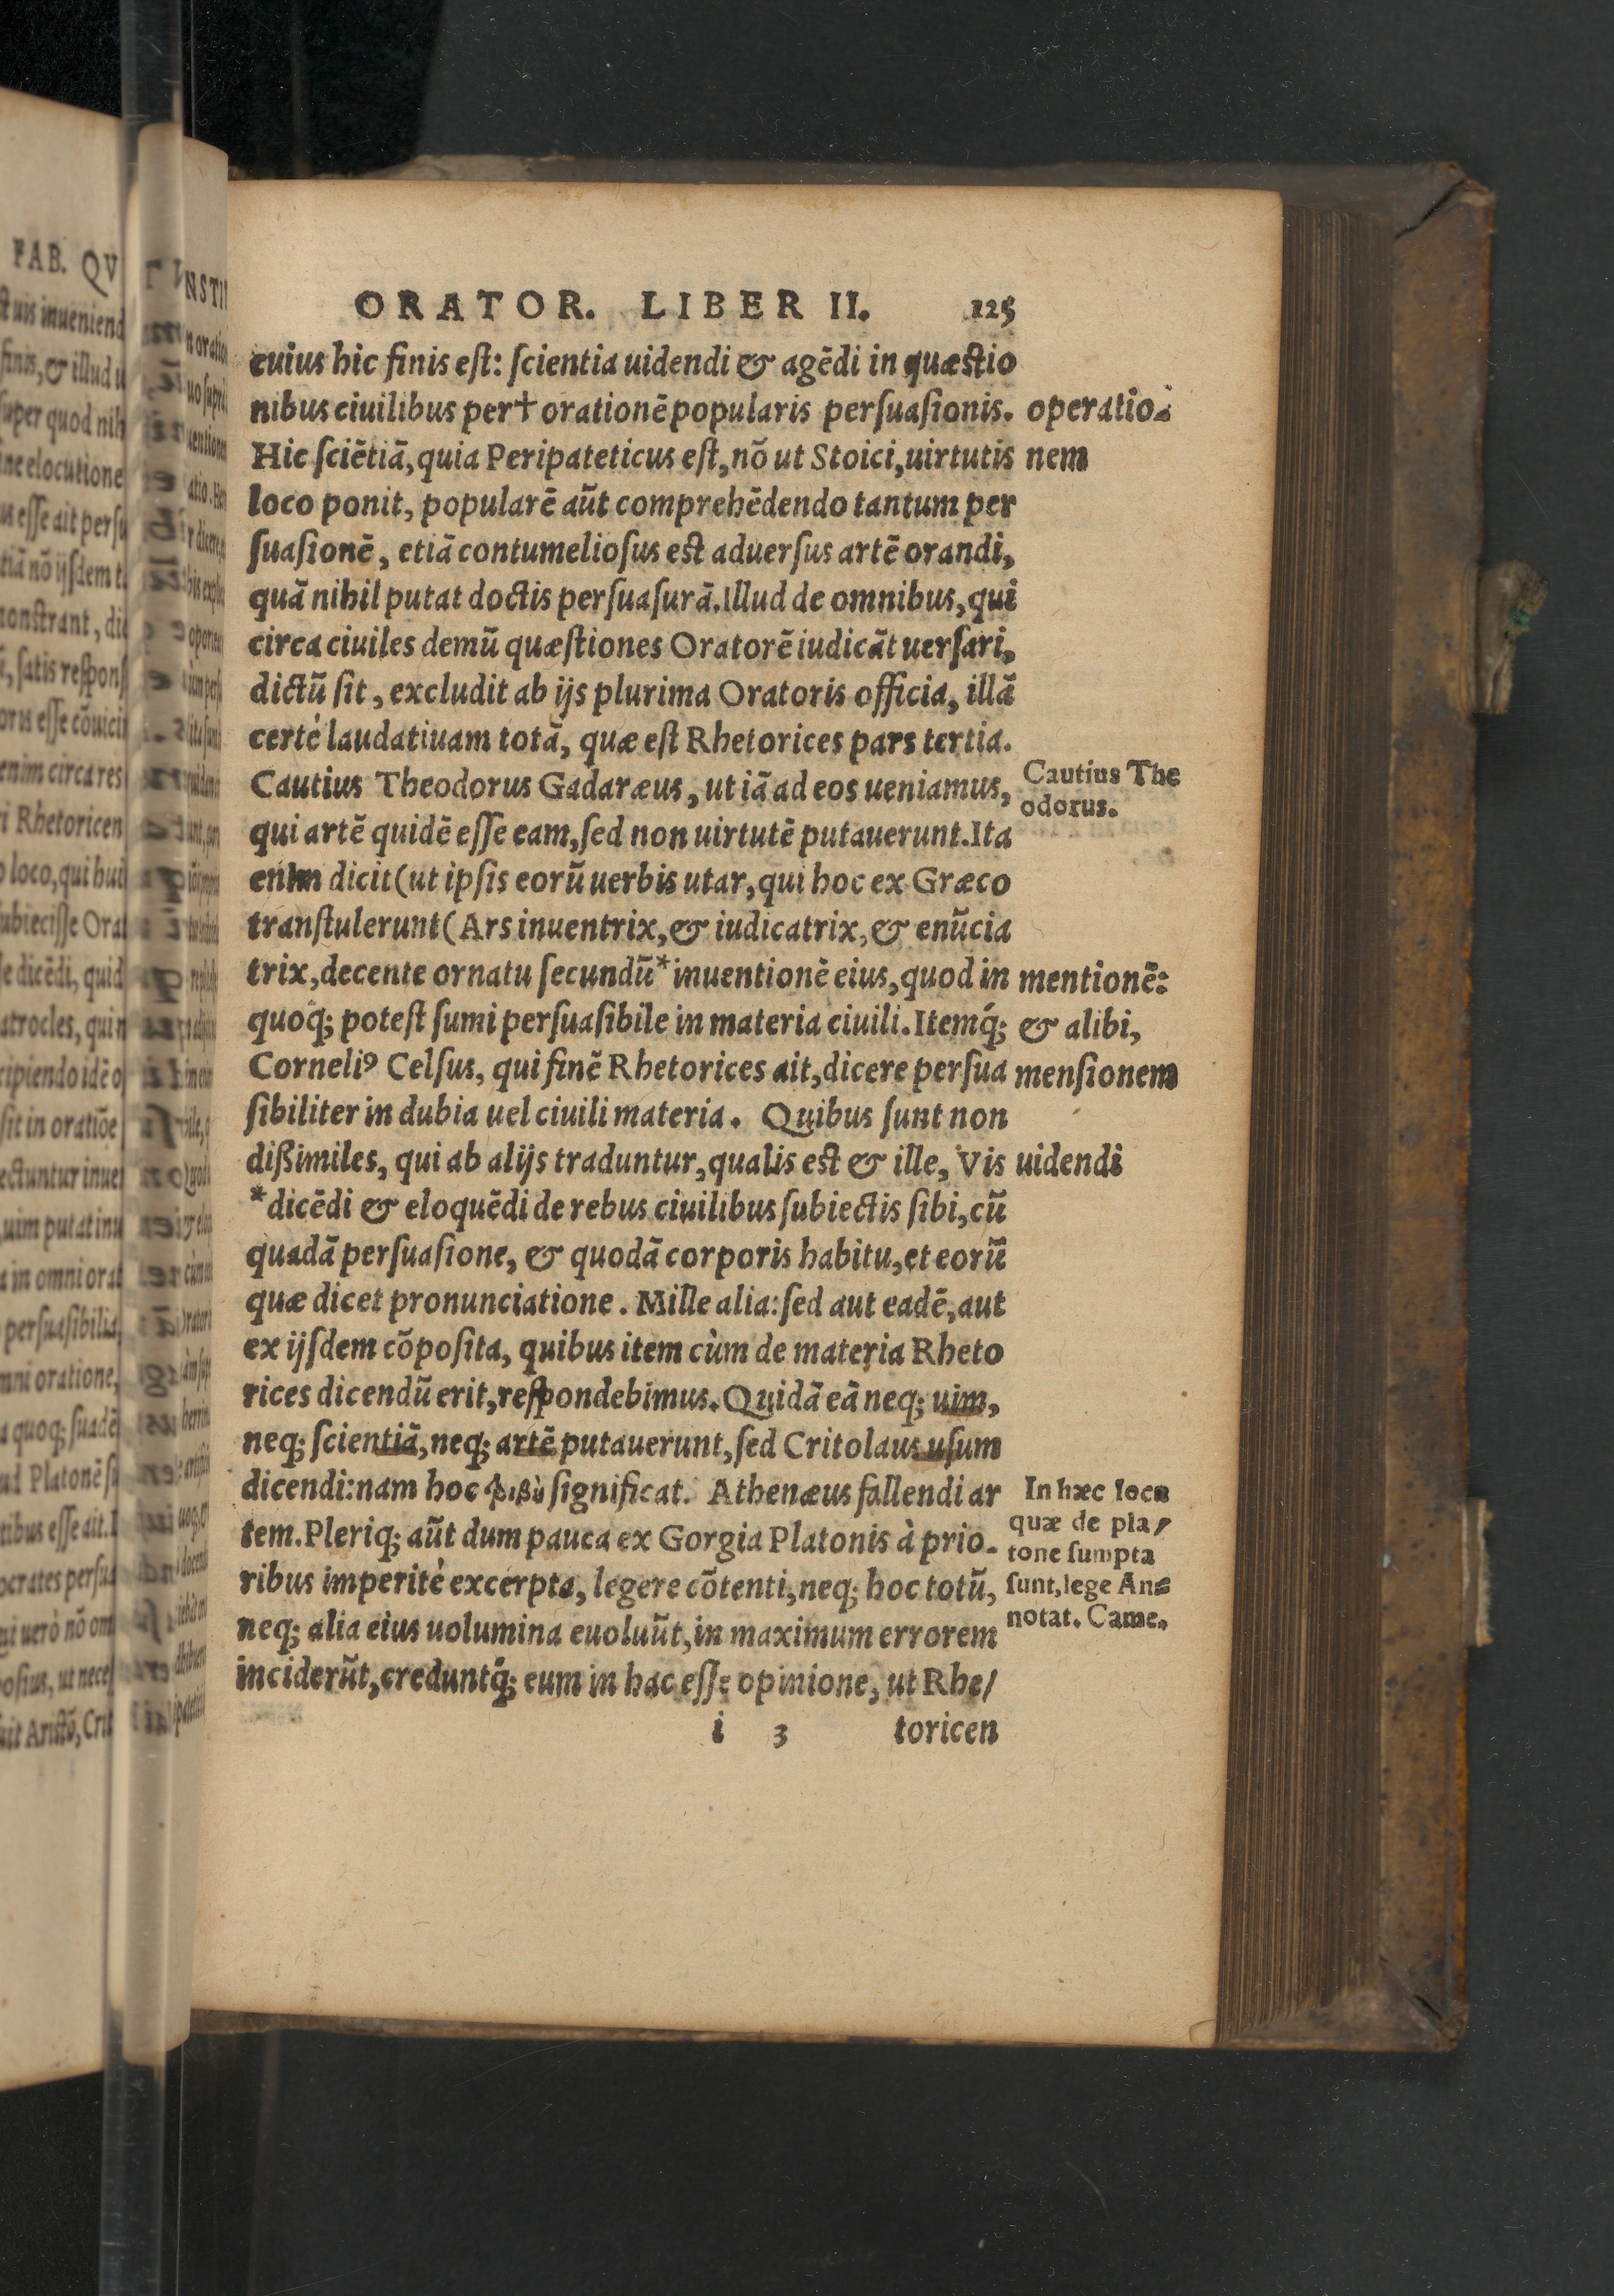 ORATOR. LIBER II. 125
cuius hic finis eſt: ſcientia uidendi & agēdi in quæſtio
nibus ciuilibus per† orationē popularis perſuaſionis.
operatio
nem
Hic ſciētiā, quia Peripateticus eſt, nō ut Stoici, uirtutis
loco ponit, popularē aūt comprehēdendo tantum per
ſuaſionē, etiā contumelioſus eſt aduerſus artē orandi,
quā nihil putat doctis perſuaſurā. Illud de omnibus, qui
circa ciuiles demū quæſtiones Oratorē iudicāt uerſari,
dictū ſit, excludit ab ijs plurima Oratoris officia, illā
certè laudatiuam totā, quæ eſt Rhetorices pars tertia.
Cautius Theodorus Gadaræus, ut iā ad eos ueniamus,
Cautius The
odorus.
qui artē quidē eſſe eam, ſed non uirtutē putauerunt. Ita
enim dicit (ut ipſis eorū uerbis utar, qui hoc ex Græco
tranſtulerunt( Ars inuentrix, & iudicatrix, & enūcia
trix, decente ornatu ſecundū *inuentionē eius, quod in
mentionē:
quoq; poteſt ſumi perſuaſibile in materia ciuili. Itemq́;
& alibi,
Corneliꝰ Celſus, qui finē Rhetorices ait, dicere perſua
menſionem
ſibiliter in dubia uel ciuili materia. Quibus ſunt non
dißimiles, qui ab alijs traduntur, qualis eſt & ille, Vis
uidendi
*dicēdi & eloquēdi de rebus ciuilibus ſubiectis ſibi, cū
quadā perſuaſione, & quodā corporis habitu, et eorū
quæ dicet pronunciatione. Mille alia: ſed aut eadē, aut
ex ijſdem cōpoſita, quibus item cùm de materia Rheto
rices dicendū erit, reſpondebimus. Quidā eā neq; uim,
neq; ſcientiā, neq; artē putauerunt, ſed Critolaus uſum
dicendi: nam hoc τριβὴ ſignificat. Athenæus fallendi ar
tem. Pleriq; aūt dum pauca ex Gorgia Platonis à prio-
ribus imperitè excerpta, legere cōtenti, neq; hoc totū,
neq; alia eius uolumina euoluūt, in maximum errorem
inciderūt, creduntq́; eum in hac eſſe opinione, ut Rhe/
In hæc loca
quæ de pla/
tone ſumpta
ſunt, lege An-
notat. Came.
i 3 toricen